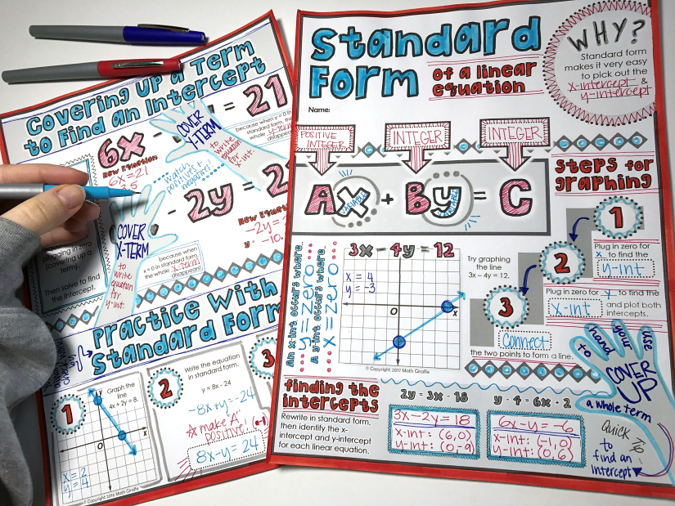 Covering Up a Term
to Find an Intercept
6x - = 21
COVER
Y-TERM
because when y = 0 in
standard form,
the whole y-term
disappears!
to
write
equation
for
x-int
New Equation
watch
positives/
negatives!
- 2y = 2
COVER
X-TERM
to
write
equation
for
y-int
because when
x = 0 in standard form,
the whole x-term
disappears!
Then solve to find
the intercept.
Practice With
Standard Form
1
Graph the
line
4x + 2y = 8.
x = 2
y = 4
© Copyright 2017 Math Giraffe
2
Write the equation
in standard form.
y = 8x - 24
-8x + y = -24
☆ make "A"
positive!
8x - y = 24
3
Standard
Form
of a linear
equation
Name:
WHY?
Standard form
makes it very easy
to pick out the
x-intercept &
y-intercept
POSITIVE
INTEGER
INTEGER
INTEGER
Ax + By = C
VARIABLE
VARIABLE
An x-int occurs where
y = zero
A y-int occurs where
x = zero
3x - 4y = 12
x = 4
y = -3
x
y
© Copyright 2017 Math Giraffe
Try graphing
the line
3x - 4y = 12.
Steps for
graphing
1
Plug in zero for
x to find the
y-int
2
Plug in zero for y to find the
x-int and plot both
intercepts.
3
Connect
the two points to form a line.
finding the
intercepts
Rewrite in standard form,
then identify the x-
intercept and y-intercept
for each linear equation.
2y = 3x - 18
3x - 2y = 18
x-int: (6,0)
y-int: (0,-9)
y - 4 = 6x + 2
6x - y = -6
x-int: (-1,0)
y-int: (0,6)
Use
your
hand
to
COVER
UP
a whole term
Quick
to
find an
intercept